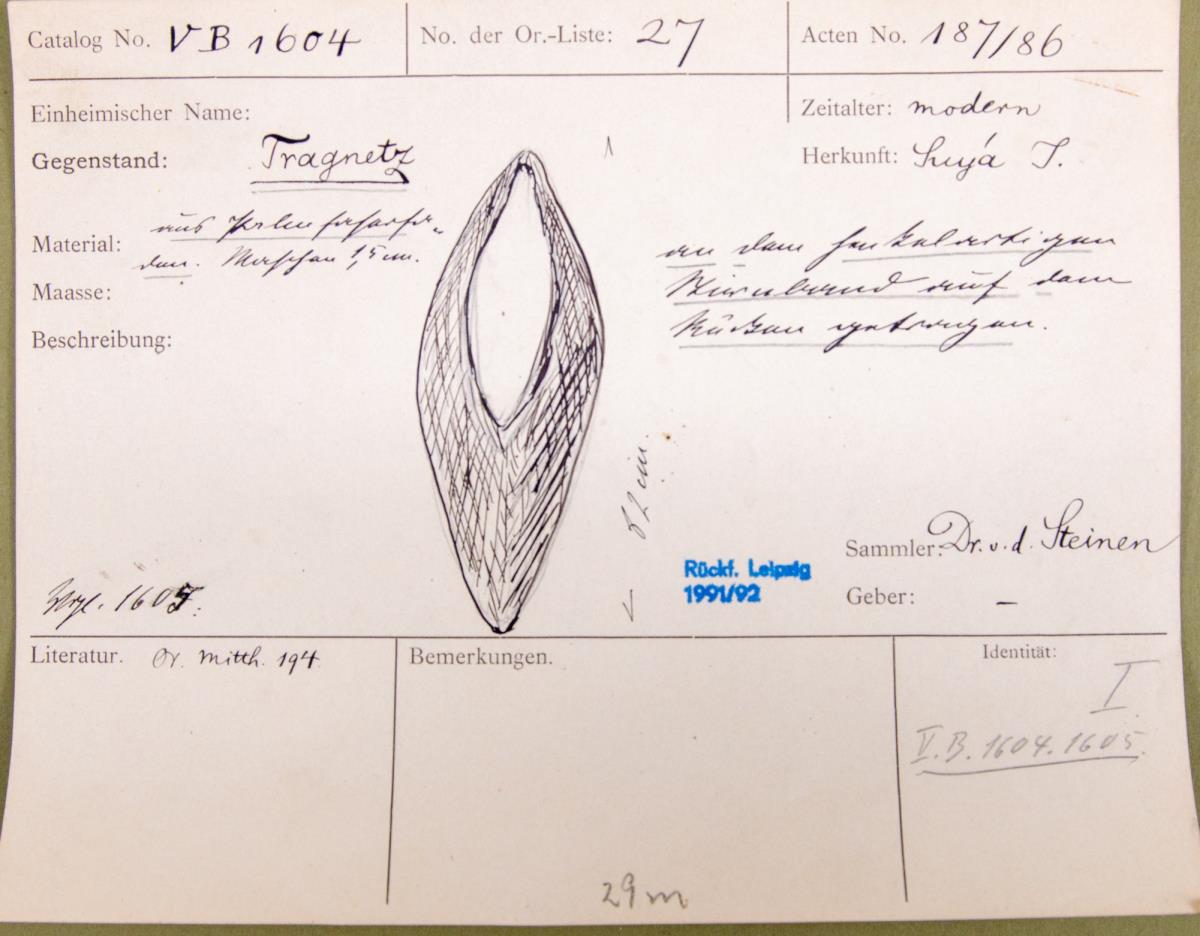 Catalog No. VB 1604
No. der Or.-Liste: 27
Acten No. 187/86
Einheimischer Name:
Zeitalter: modern
Gegenstand: Tragnetz
Herkunft: Suyá I.
Material: aus Palmfaserfä-
den. Maschen 1,5 cm.
Maasse:
Beschreibung:
an dem henkelartigen
Stirnband auf dem
Rücken getragen.
62 cm.
Sammler: Dr. v. d. Steinen
Rückf. Leipzig
1991/92
Geber: —
Vgl. 1605.
Literatur. Or. Mitth. 194.
Bemerkungen.
Identität:
I
V.B. 1604. 1605.
29 m